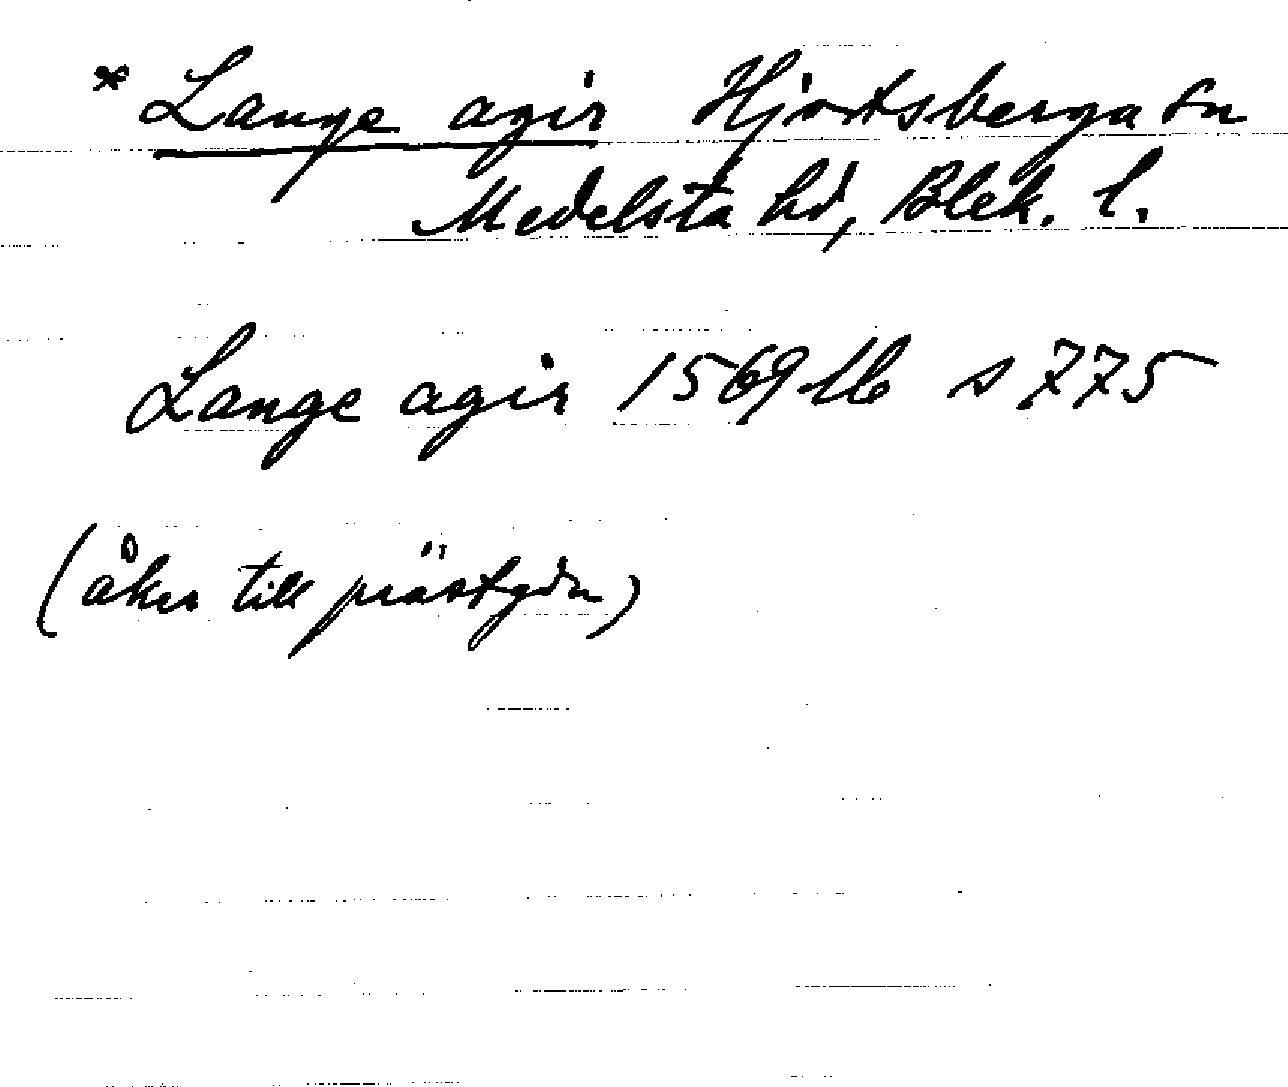 * Lange agir Hjortsberga sn
Medelsta hd, Blek. l.
Lange agir 1569 lb s 775
(åker till prästgdn)